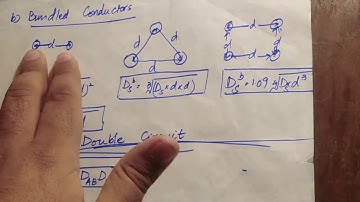 b) Bundled Conductors
d
d d
d
d
d d
d
D_s^b = ∛(D_s × d × d)
D_s^b = 1.09 ∜D_s × d³
)²
Double Circuit
D_AB D